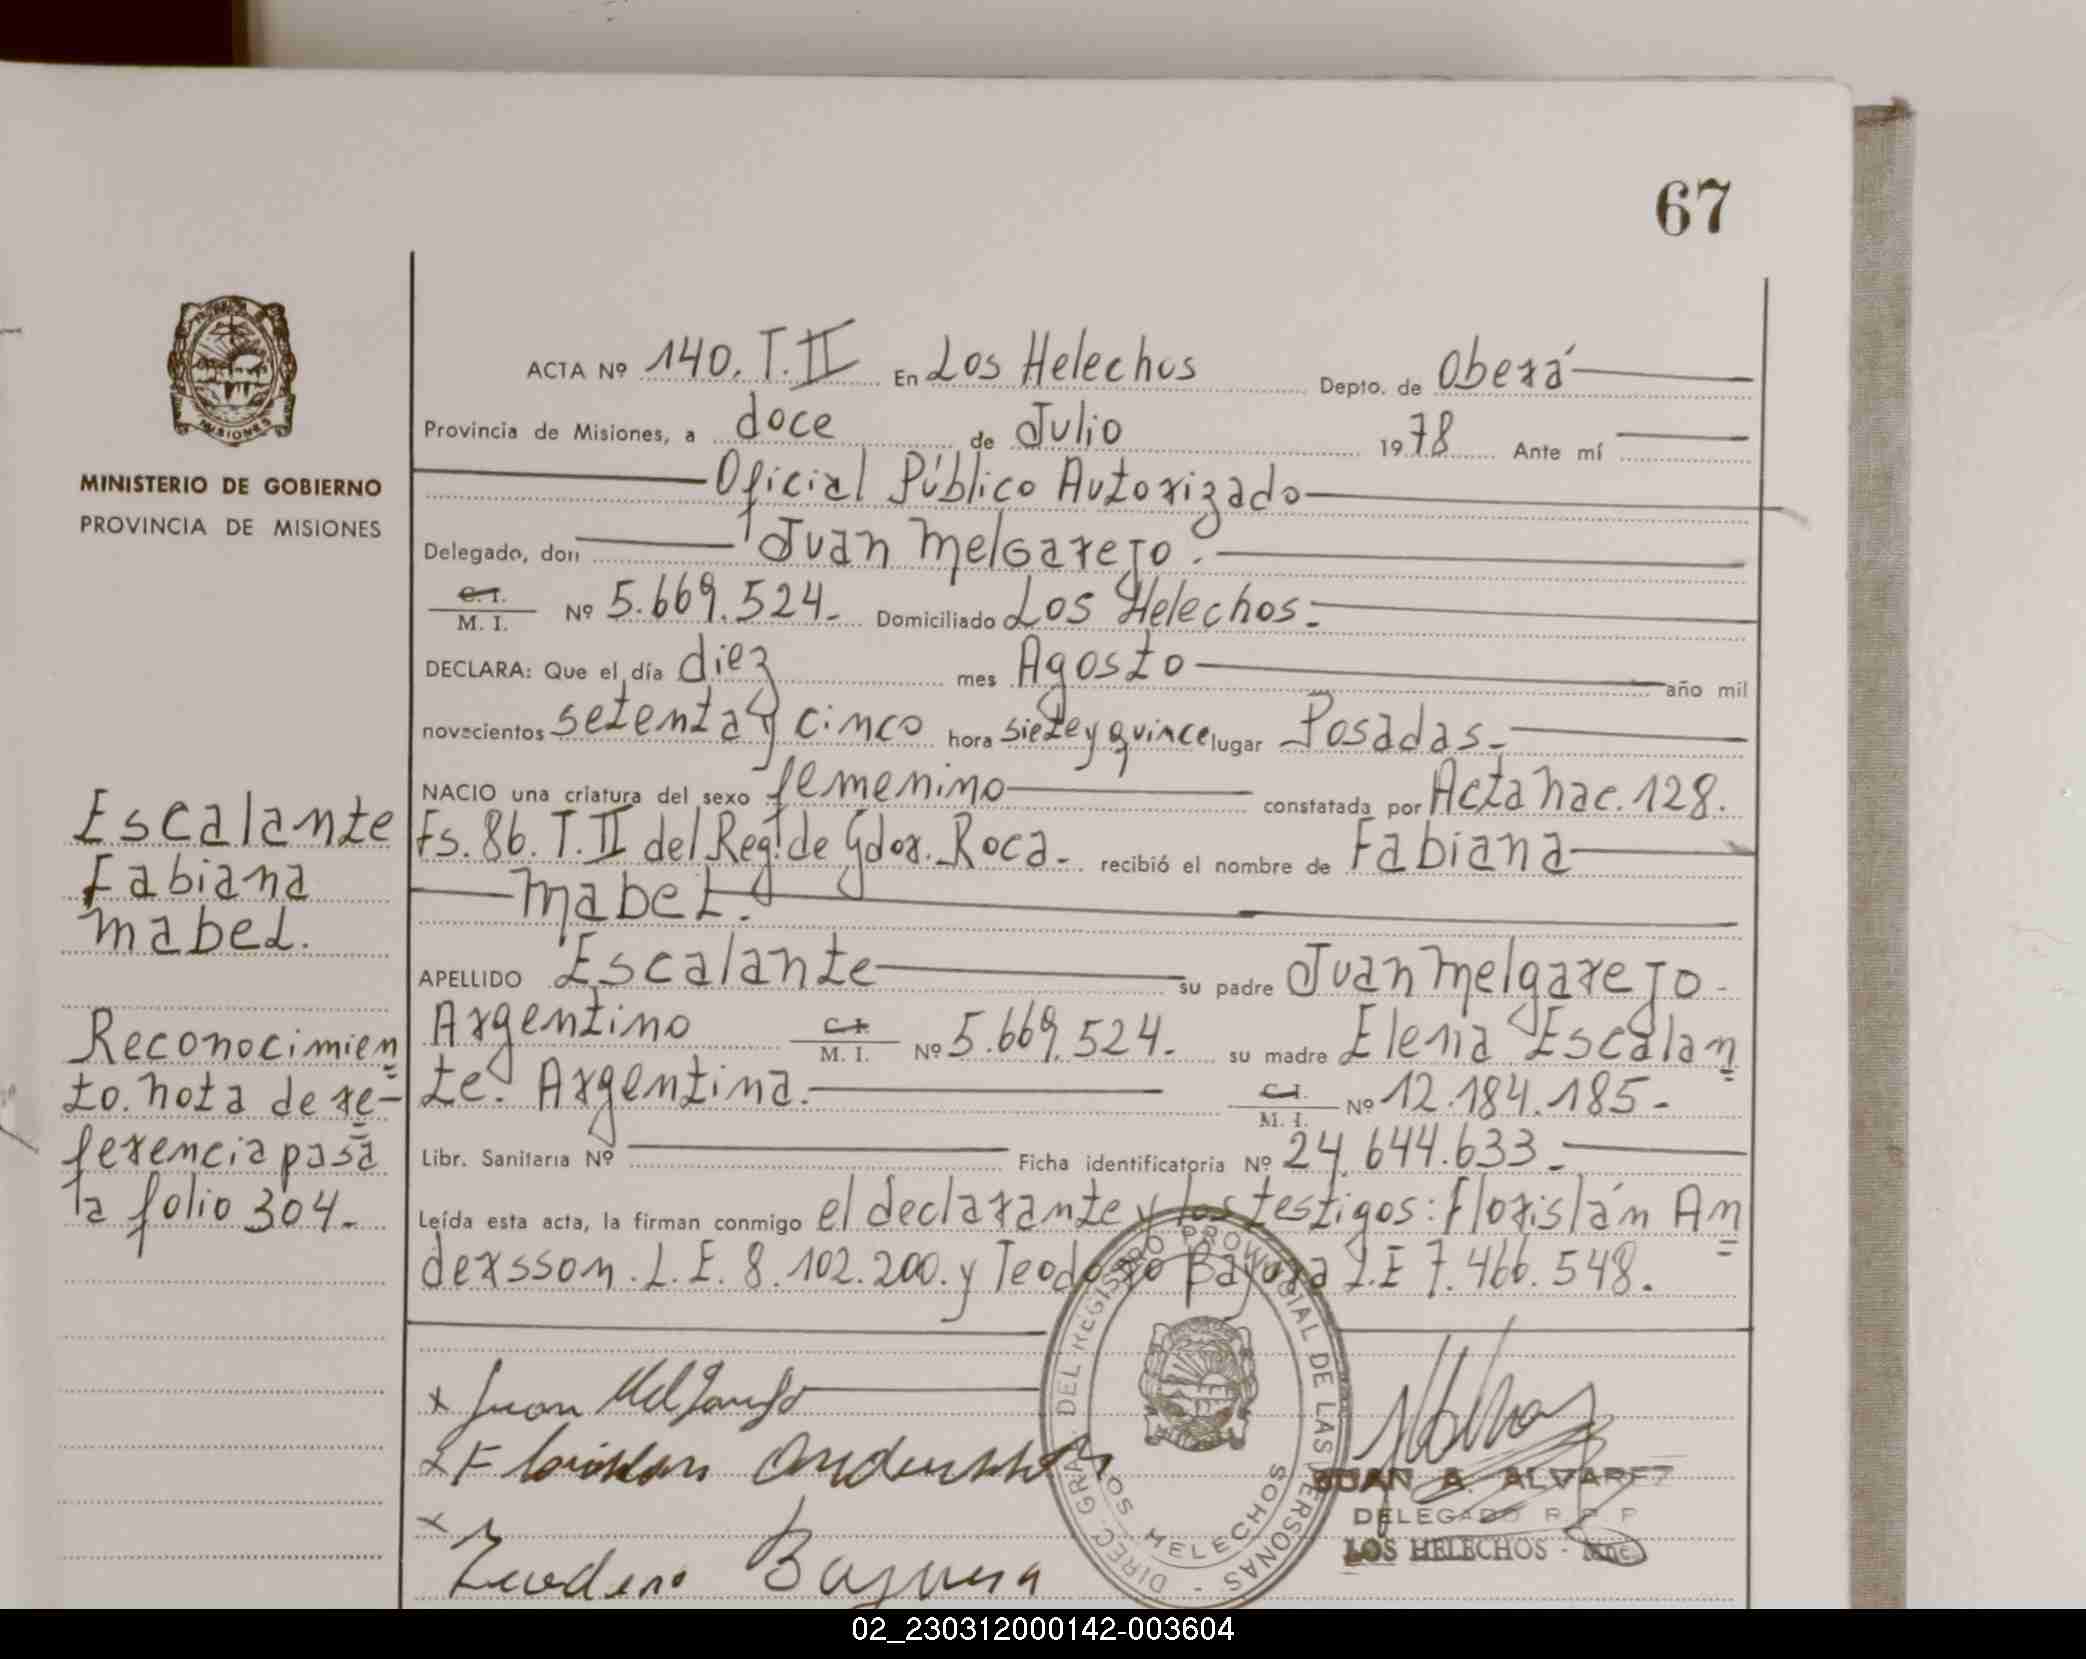 67
ACTA Nº 140. T. II En Los Helechos Depto. de Oberá
Provincia de Misiones, a doce de Julio 1978 Ante mí
Oficial Público Autorizado
Delegado, don Juan Melgarejo.
C. I.
M. I. Nº 5.669.524.- Domiciliado Los Helechos.-
DECLARA: Que el día diez mes Agosto año mil
novecientos setenta y cinco hora siete y quince lugar Posadas.-
NACIO una criatura del sexo femenino constatada por Acta Nac. 128.
Fs. 86. T. II del Reg. de Gdor. Roca.- recibió el nombre de Fabiana
Mabel.
APELLIDO Escalante su padre Juan Melgarejo-
Argentino C. I.
M. I. Nº 5.669.524.- su madre Elena Escalan=
te. Argentina. C. I.
M. I. Nº 12.184.185-
Libr. Sanitaria Nº Ficha identificatoria Nº 24.644.633.-
Leída esta acta, la firman conmigo el declarante y los testigos: Florislán An=
dersson. L.E. 8.102.200. y Teodoro Bayura L.E 7.466.548.
MISIONES
MINISTERIO DE GOBIERNO
PROVINCIA DE MISIONES
Escalante
Fabiana
Mabel.
Reconocimien=
to. Nota de re=
ferencia pasa
a folio 304.-
x Juan Melgarejo
x Florislan Andersson
x
Teodoro Bayura
DIREC. GRAL. DEL REGISTRO PROVINCIAL DE LAS PERSONAS -
LOS HELECHOS
JUAN A. ALVAREZ
DELEGADO R P P
LOS HELECHOS - Mnes.
02_230312000142-003604